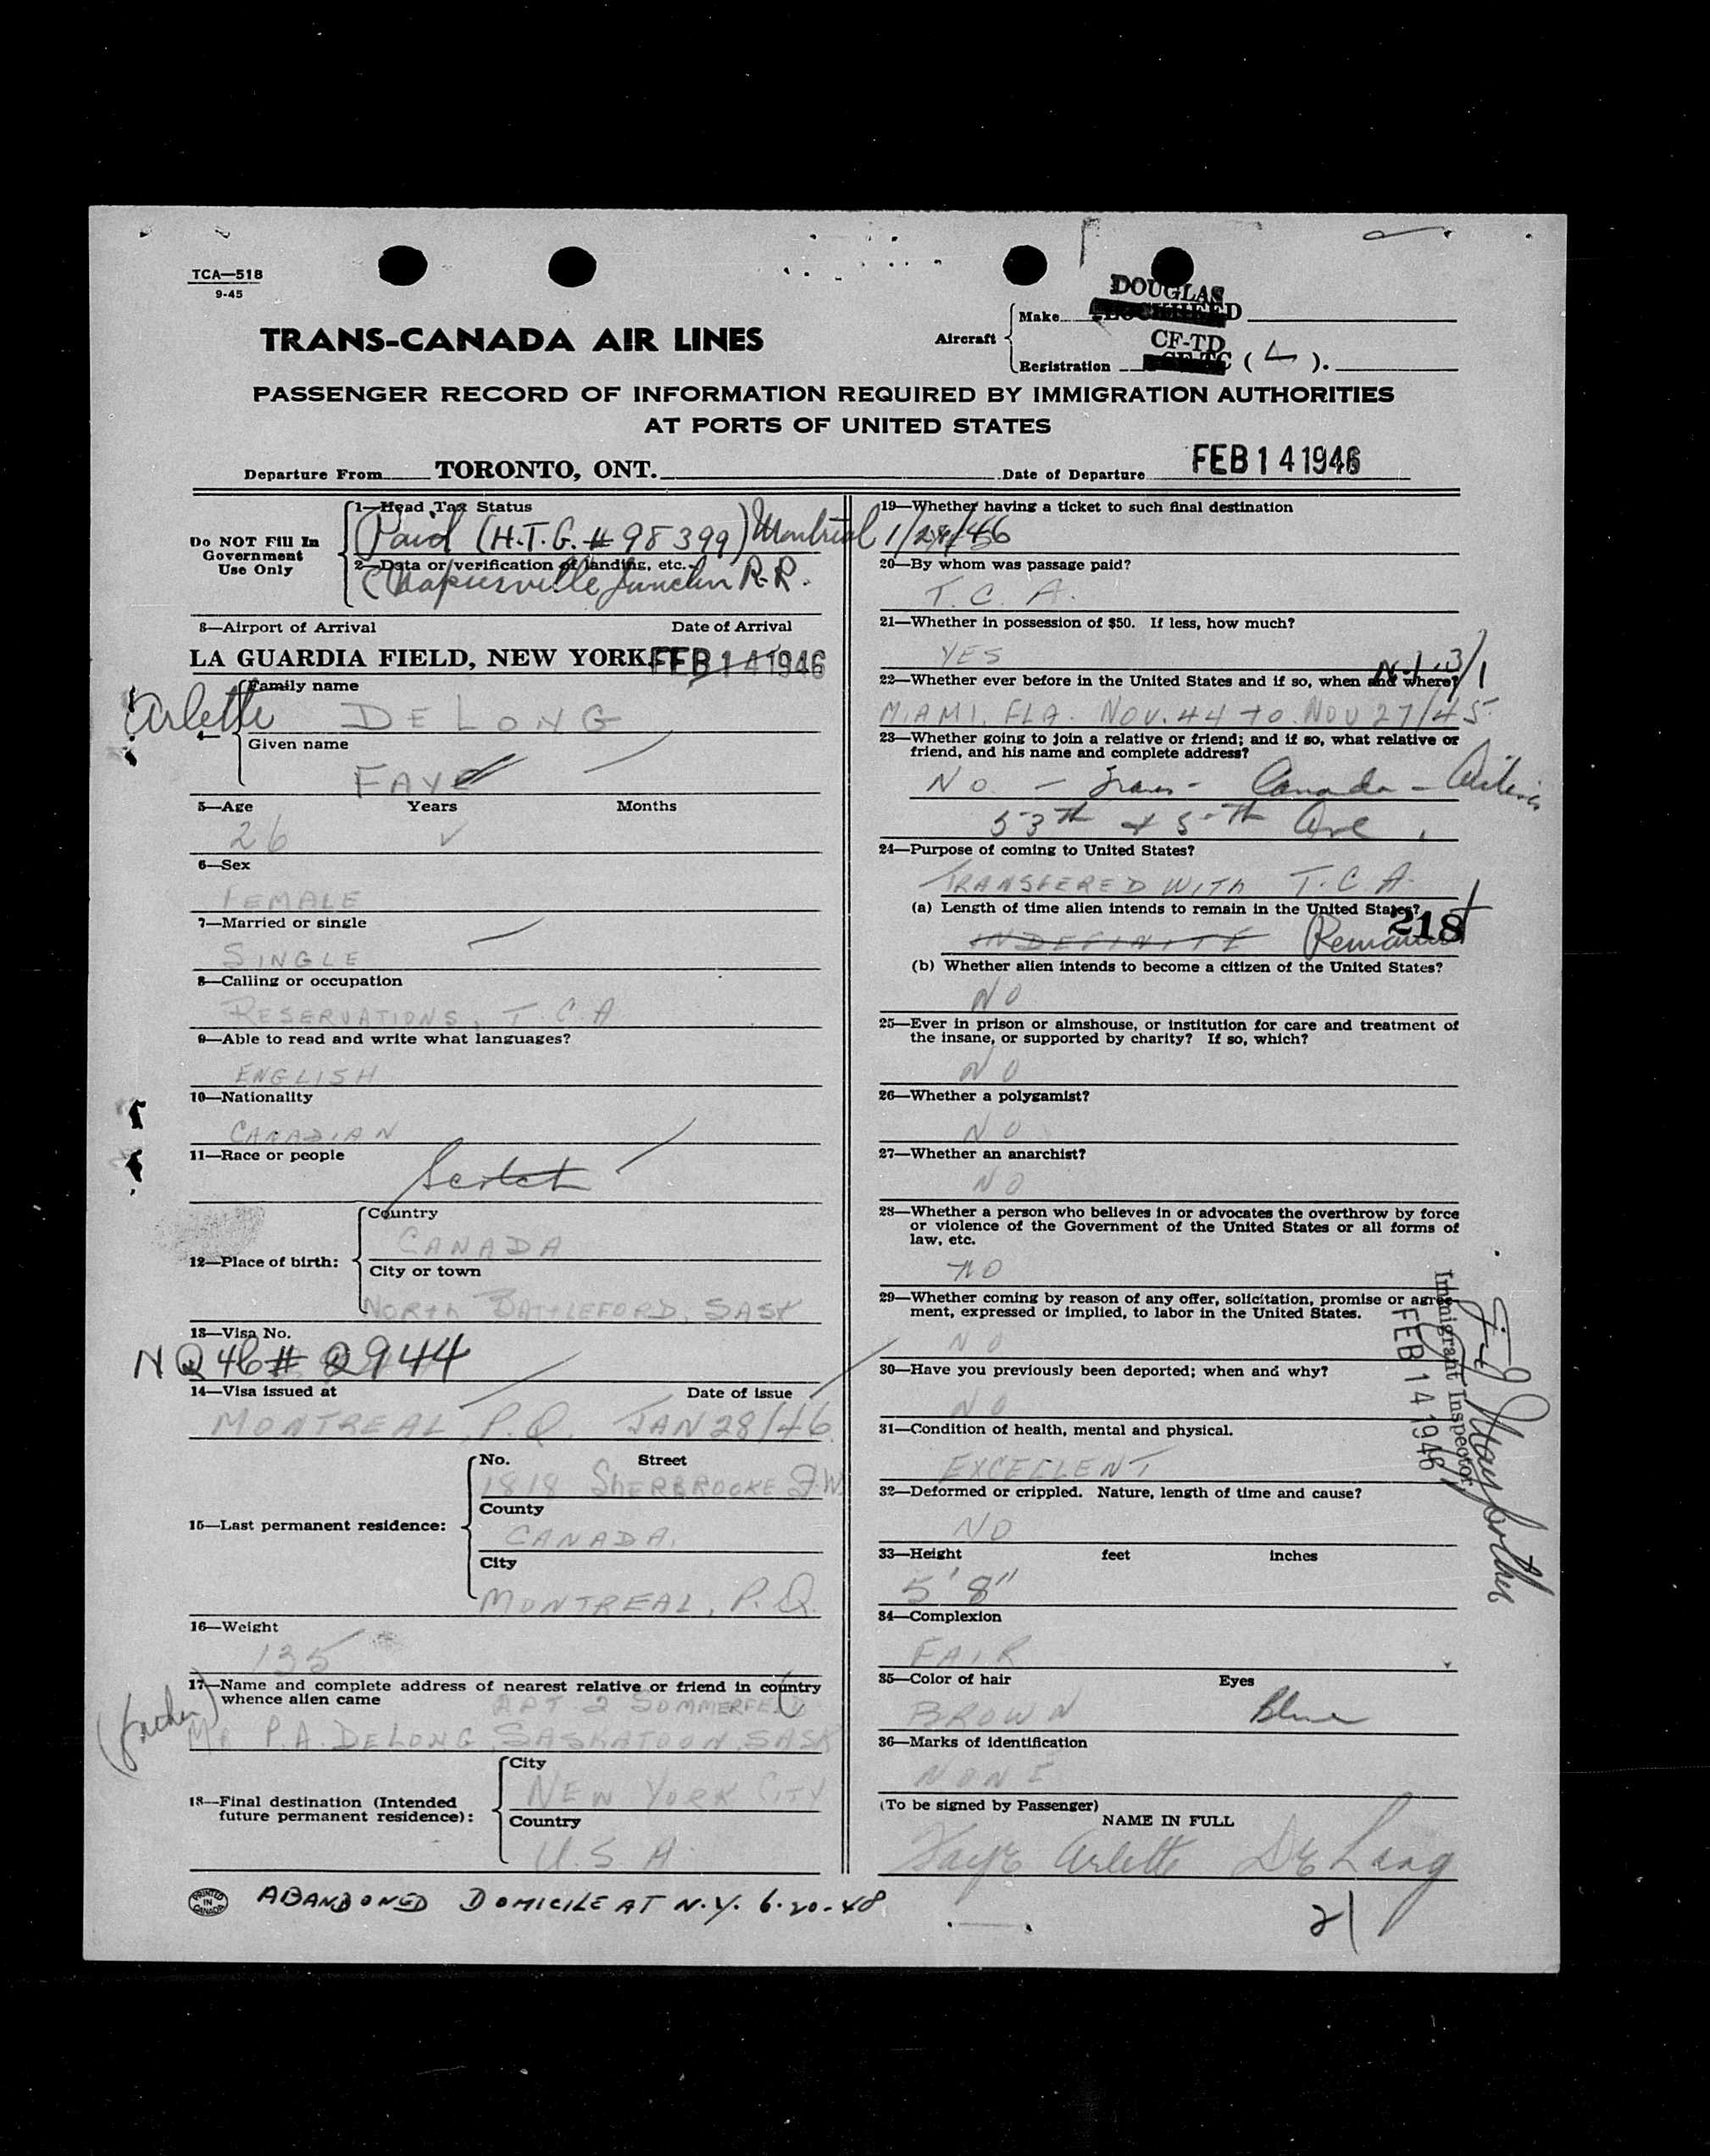 TCA—518
9-45
DOUGLAS
Aircraft
Make LOCKHEED
CF-TD
Registration CF-TC ( L ).
TRANS-CANADA AIR LINES
PASSENGER RECORD OF INFORMATION REQUIRED BY IMMIGRATION AUTHORITIES
AT PORTS OF UNITED STATES
Departure From TORONTO, ONT. Date of Departure FEB 14 1946
Do NOT Fill In
Government
Use Only
1—Head Tax Status
Paid (H.T.G. # 98399) Montreal 1/28/46
2—Data or verification of landing, etc.
Junction R.R.
3—Airport of Arrival Date of Arrival
LA GUARDIA FIELD, NEW YORK FEB 14 1946
Family name
Arlette DE LONG
Given name
FAYE
5—Age Years Months
26
6—Sex
FEMALE
7—Married or single
SINGLE
8—Calling or occupation
RESERVATIONS, T.C.A
9—Able to read and write what languages?
ENGLISH
10—Nationality
CANADIAN
11—Race or people
Scotch
12—Place of birth:
Country
CANADA
City or town
NORTH BATTLEFORD, SASK
13—Visa No.
NQ 46 # 2944
14—Visa issued at Date of issue
MONTREAL, P.Q. JAN 28/46
15—Last permanent residence:
No. Street
1818 SHERBROOKE St. W.
County
CANADA.
City
MONTREAL, P.Q.
16—Weight
135
17—Name and complete address of nearest relative or friend in country
whence alien came
APT 2 SOMMERFELD
(father) Mr P.A. DELONG, SASKATOON, SASK
18—Final destination (Intended
future permanent residence):
City
NEW YORK CITY
Country
U.S.A.
19—Whether having a ticket to such final destination
YES
20—By whom was passage paid?
T.C.A.
21—Whether in possession of $50. If less, how much?
YES
22—Whether ever before in the United States and if so, when and where?
MIAMI, FLA. NOV. 44 TO NOV 27/45
23—Whether going to join a relative or friend; and if so, what relative or
friend, and his name and complete address?
NO - Trans - Canada - Airlines
53th & 5th Ave.
24—Purpose of coming to United States?
TRANSFERED WITH T.C.A.
(a) Length of time alien intends to remain in the United States?
INDEFINITE Permanent 218
(b) Whether alien intends to become a citizen of the United States?
NO
25—Ever in prison or almshouse, or institution for care and treatment of
the insane, or supported by charity? If so, which?
NO
26—Whether a polygamist?
NO
27—Whether an anarchist?
NO
28—Whether a person who believes in or advocates the overthrow by force
or violence of the Government of the United States or all forms of
law, etc.
NO
29—Whether coming by reason of any offer, solicitation, promise or agree-
ment, expressed or implied, to labor in the United States.
NO
30—Have you previously been deported; when and why?
NO
31—Condition of health, mental and physical.
EXCELLENT
32—Deformed or crippled. Nature, length of time and cause?
NO
33—Height feet inches
5' 8"
34—Complexion
FAIR
35—Color of hair Eyes
BROWN Blue
36—Marks of identification
NONE
(To be signed by Passenger)
NAME IN FULL
Faye Arlette De Long
Immigrant Inspector
FEB 14 1946
PRINTED IN CANADA
ABANDONED DOMICILE AT N.Y. 6-20-48
21